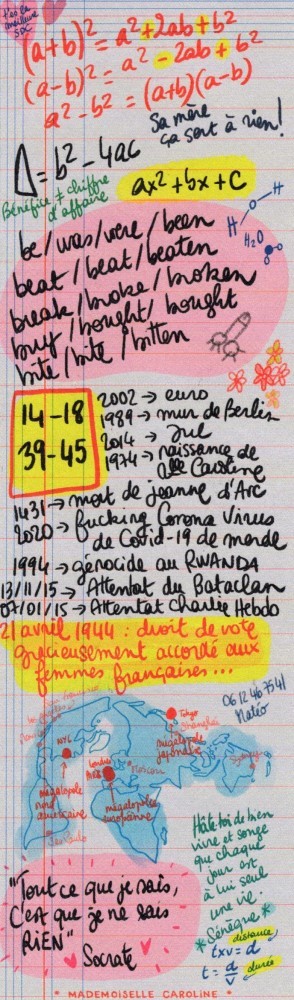 t'es la
meilleure
SDC
(a+b)² = a² + 2ab + b²
(a-b)² = a² - 2ab + b²
a² - b² = (a+b)(a-b)
Sa mère
ça sert à rien!
Δ = b² - 4ac
Bénéfice ≠ chiffre
d'affaire
ax² + bx + c
H O H
H₂O
be / was/were / been
beat / beat / beaten
break / broke / broken
buy / bought / bought
bite / bite / bitten
14-18
39-45
2002 → euro
1989 → mur de Berlin
2014 → Jul
1974 → naissance de
Mlle Caroline
1431 → mort de jeanne d'Arc
2020 → fucking Corona Virus
de Covid-19 de merde
1994 → génocide au RWANDA
13/11/15 → Attentat du Bataclan
07/01/15 → Attentat Charlie Hebdo
21 avril 1944 : droit de vote
gracieusement accordé aux
femmes françaises...
06 12 46 75 41
Matéo
NYC
Tokyo
Shanghai
mégalopole
japonaise
Londres
Moscou
Sydney
mégalopole
nord
américaine
mégalopole
européenne
Sao Paulo
Hâte-toi de bien
vivre et songe
que chaque
jour est
à lui seul
une vie.
* Sénèque *
"Tout ce que je sais,
C'est que je ne sais
RIEN"
Socrate
distance
txv = d
t = d/v
durée
* MADEMOISELLE CAROLINE *